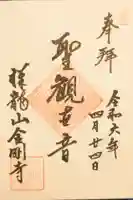 奉拝
令和六年
四月廿四日
聖観世音
龍山金剛寺